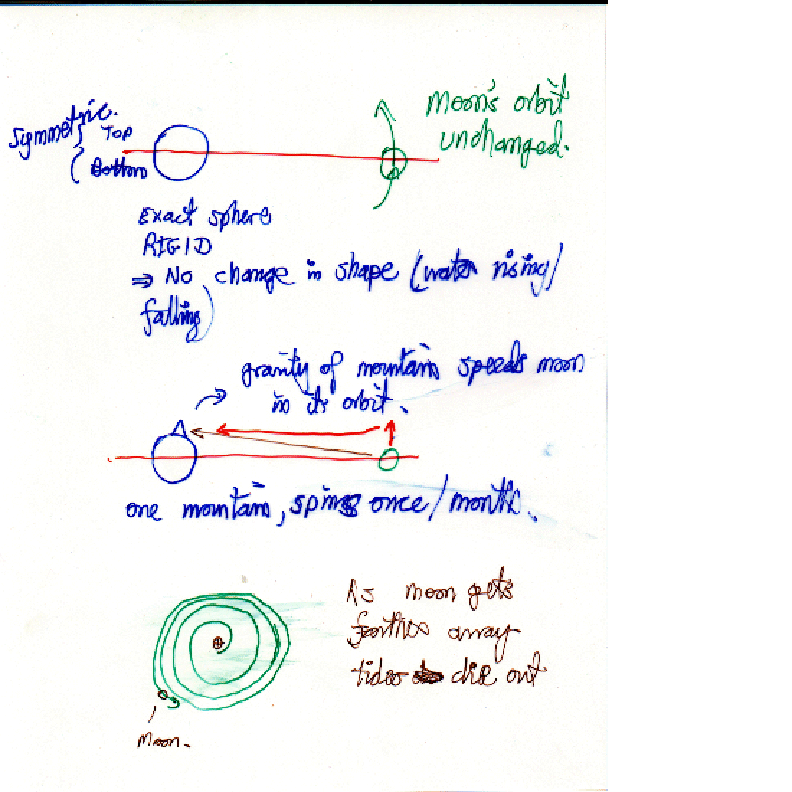 Symmetric.
Top
Bottom
Moon's orbit
unchanged.
Exact sphere
RIGID
⇒ No change in shape (water rising/
falling)
gravity of mountain speeds moon
in its orbit.
one mountain, spins once/month.
As moon gets
farther away
tides die out
Moon.